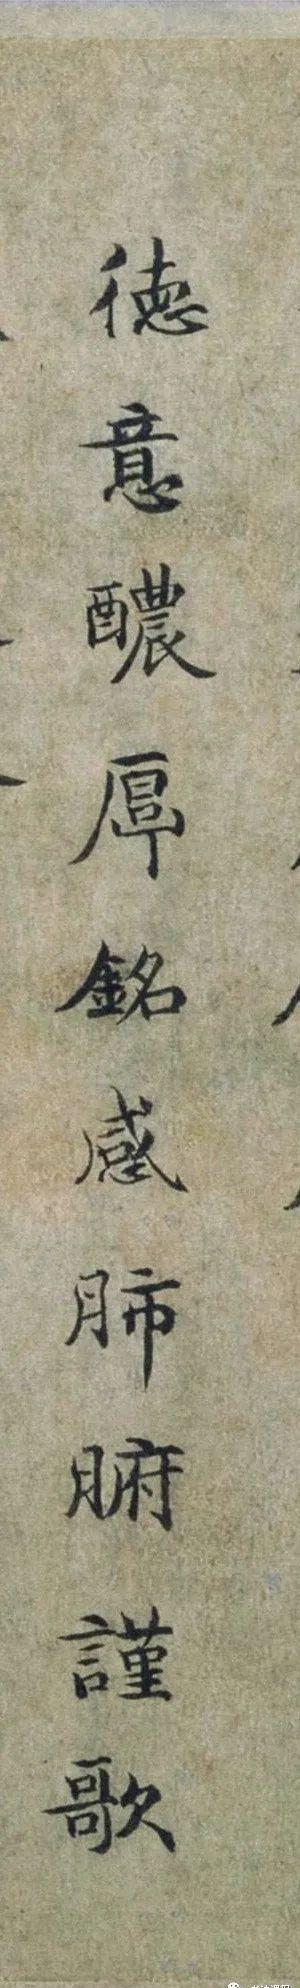 德意醲厚銘感肺腑謹歌